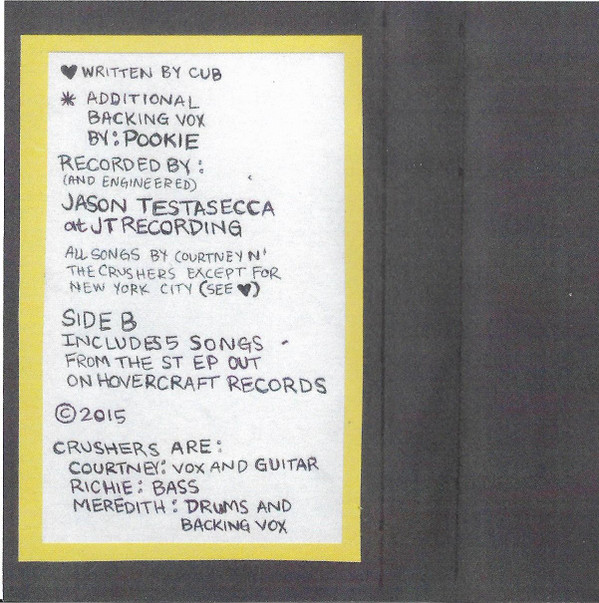 ♥ WRITTEN BY CUB
* ADDITIONAL
BACKING VOX
BY: POOKIE
RECORDED BY:
(AND ENGINEERED)
JASON TESTASECCA
at JT RECORDING
ALL SONGS BY COURTNEY N'
THE CRUSHERS EXCEPT FOR
NEW YORK CITY (SEE ♥)
SIDE B
INCLUDES 5 SONGS
FROM THE ST EP OUT
ON HOVERCRAFT RECORDS
©2015
CRUSHERS ARE:
COURTNEY: VOX AND GUITAR
RICHIE: BASS
MEREDITH: DRUMS AND
BACKING VOX